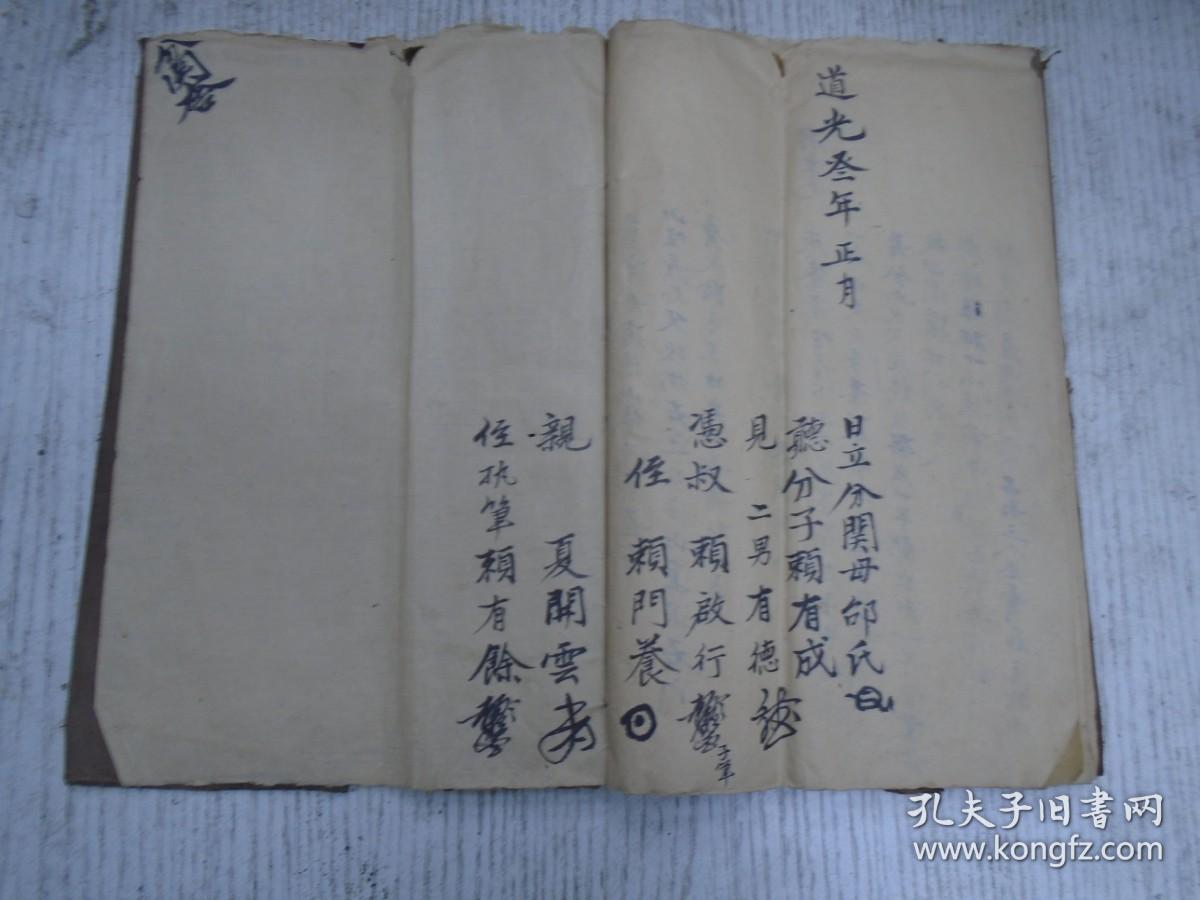 道光叁年正月
日立分関母邰氏
聽分子賴有成
見 二男有德
憑叔 賴啟行
子筆
侄 賴門養
親 夏開雲
侄执筆賴有餘
孔夫子旧书网
www.kongfz.com